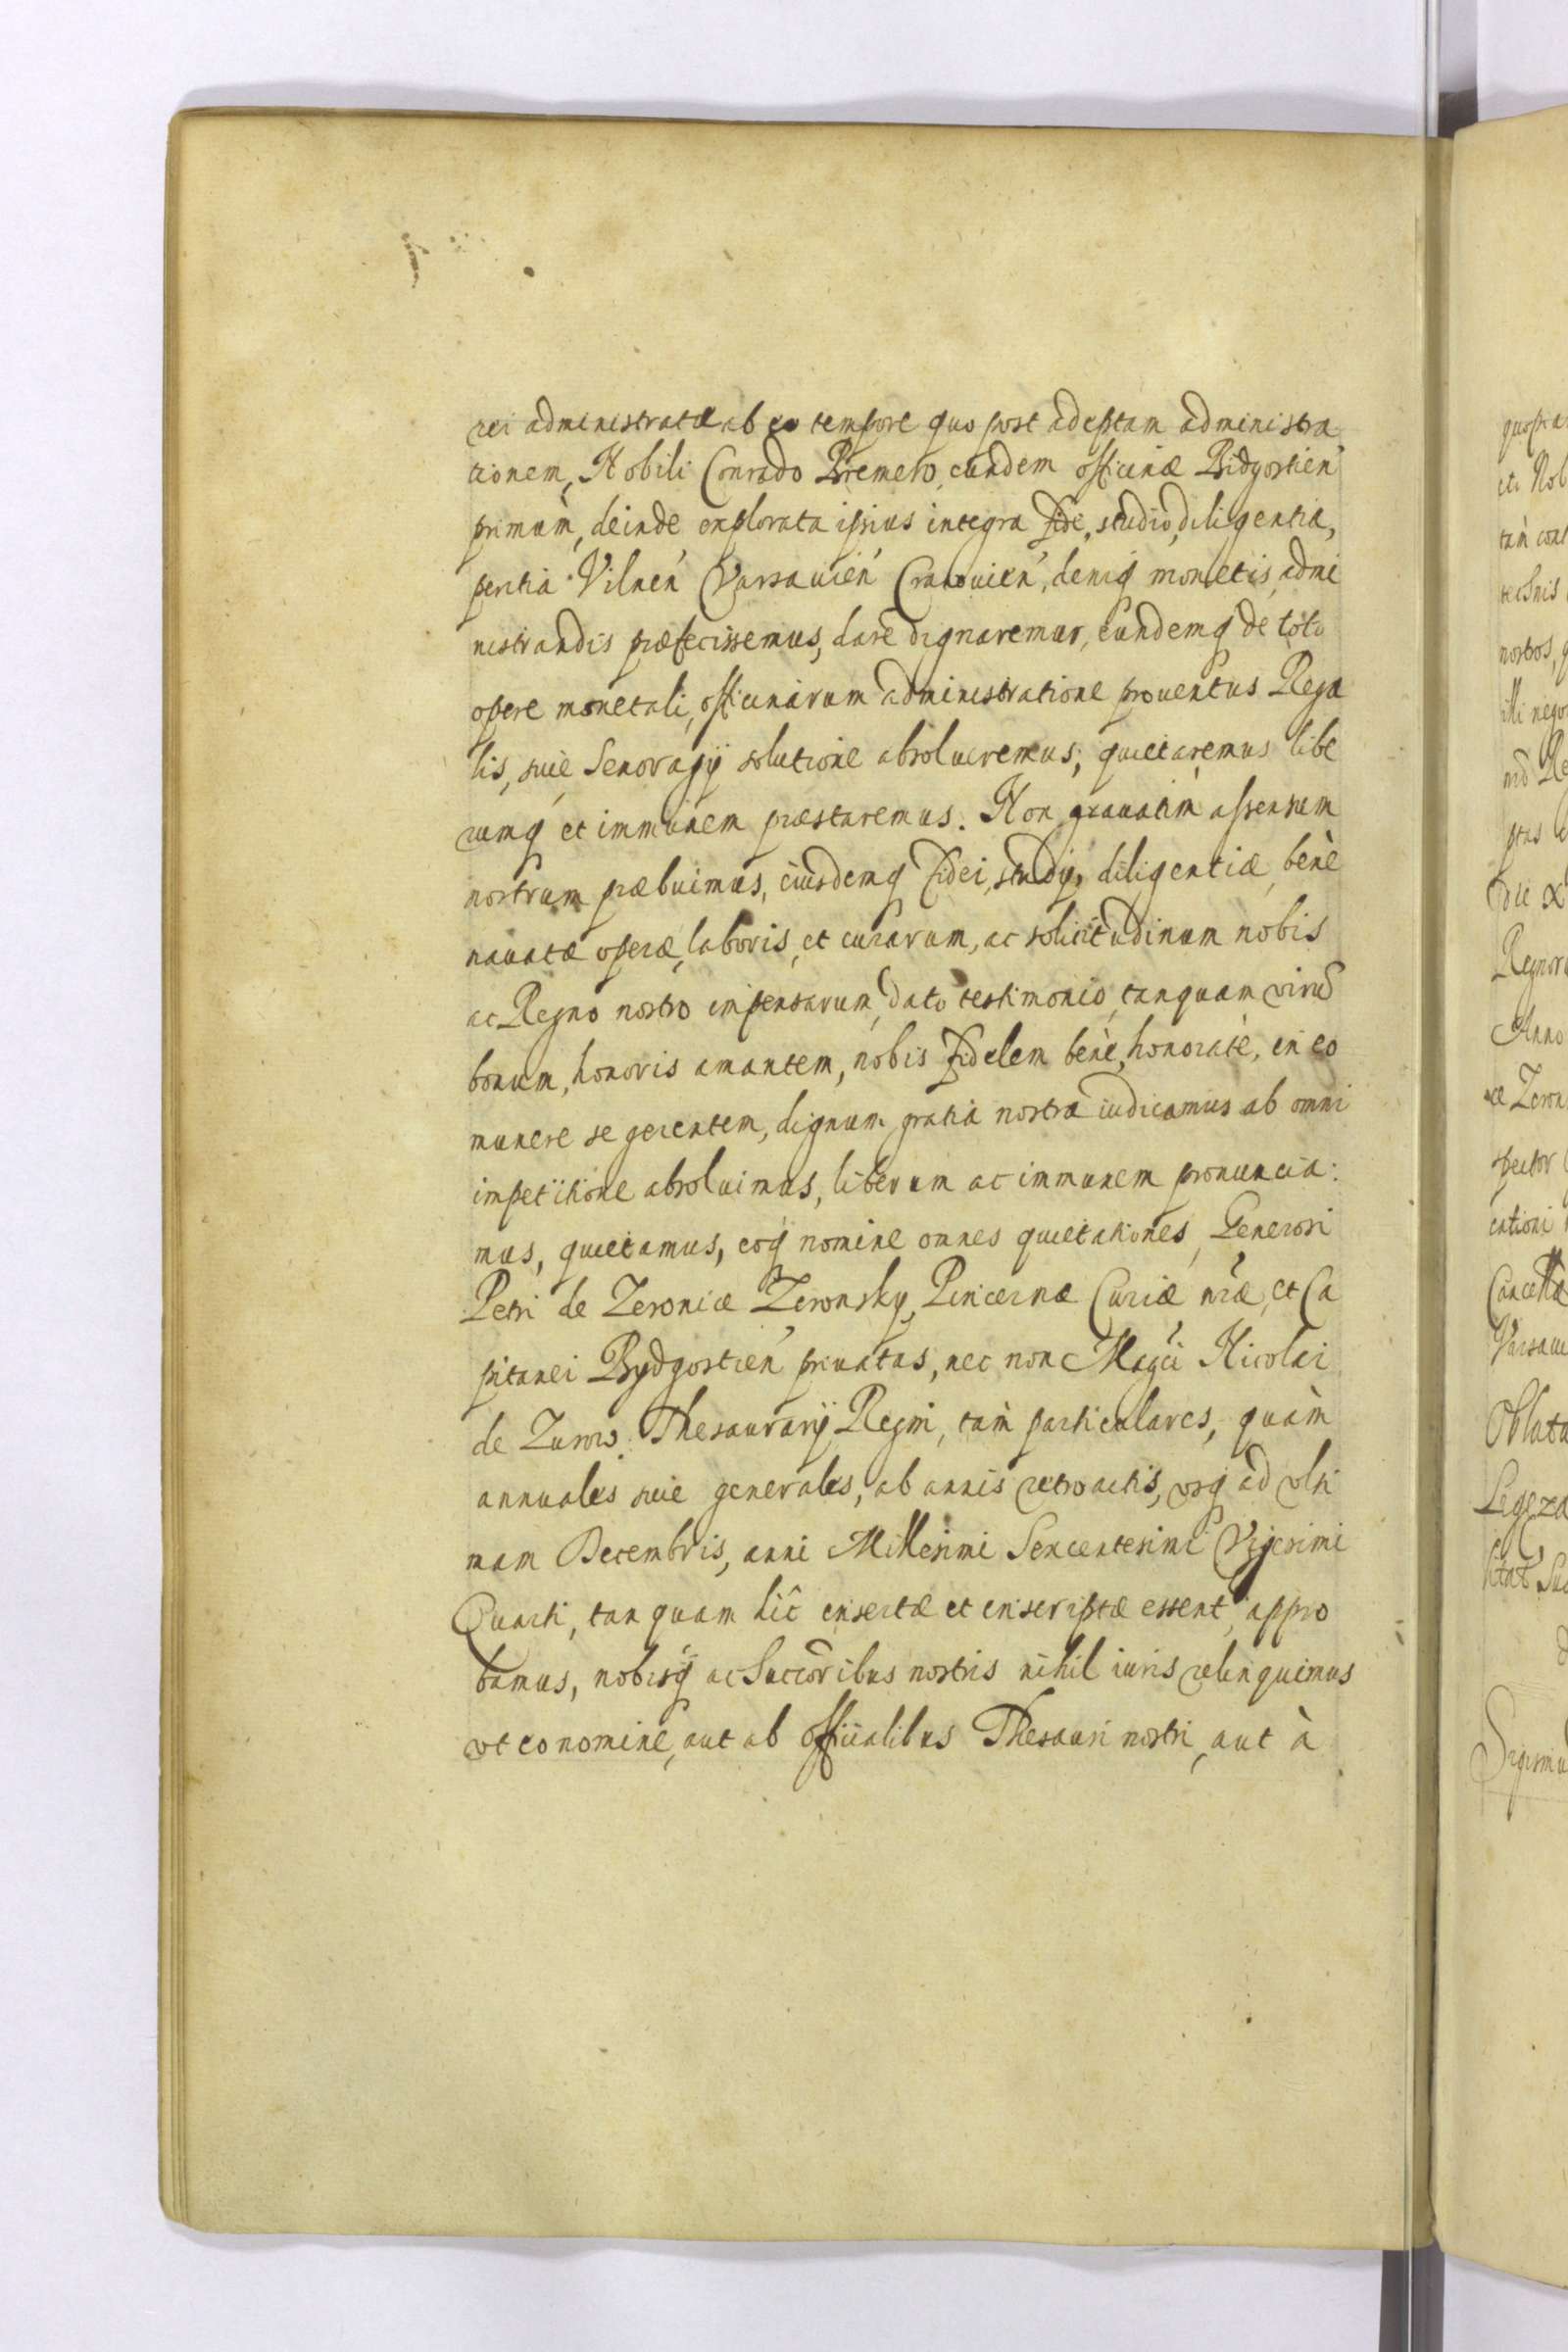 rei administratæ ab eo tempore quo post adeptam administra
tionem, Nobili Conrado Bremero, eundem officinæ Bidgostien
primùm, deinde explorata ipsius integra fide, studio, diligentia,
peritia Vilnen Varsauien Cracouien, deniq monetis admi
nistrandis præfecissemus, dare dignaremur, eundemq de toto
opere monetali, officinarum administratione prouentus Rega
lis, siue Senoragij solutione absolueremus, quietaremus libe
rumq et immunem præstaremus. Non grauatim assensum
nostrum præbuimus, eiusdemq fidei, studij, diligentiæ, benè
nauatæ operæ, laboris, et curarum, ac solicitudinum nobis
ac Regno nostro impensarum, dato testimonio, tanquam virū
bonum, honoris amantem, nobis fidelem benè, honoratè, in eo
munere se gerentem, dignum gratia nostra iudicamus ab omni
impetitione absoluimus, liberum ac immunem pronuncia:
mus, quietamus, eoq nomine omnes quietationes, Generosi
Petri de Zeronice Zeronsky, Pincernæ Curiæ nræ, et Ca
pitanei Bydgostien priuatas, nec non Magci Nicolai
de Zurow Thesaurarij Regni, tàm particulares, quàm
annuales siue generales, ab annis retroactis, vsq ad vlti
mam Decembris, anni Millesimi Sexcentesimi Vigesimi
Quarti, tanquam hîc insertæ et inscriptæ essent, appro
bamus, nobisq ac Succoribus nostris nihil iuris relinquimus
vt eo nomine, aut ab officialibus Thesauri nostri, aut à